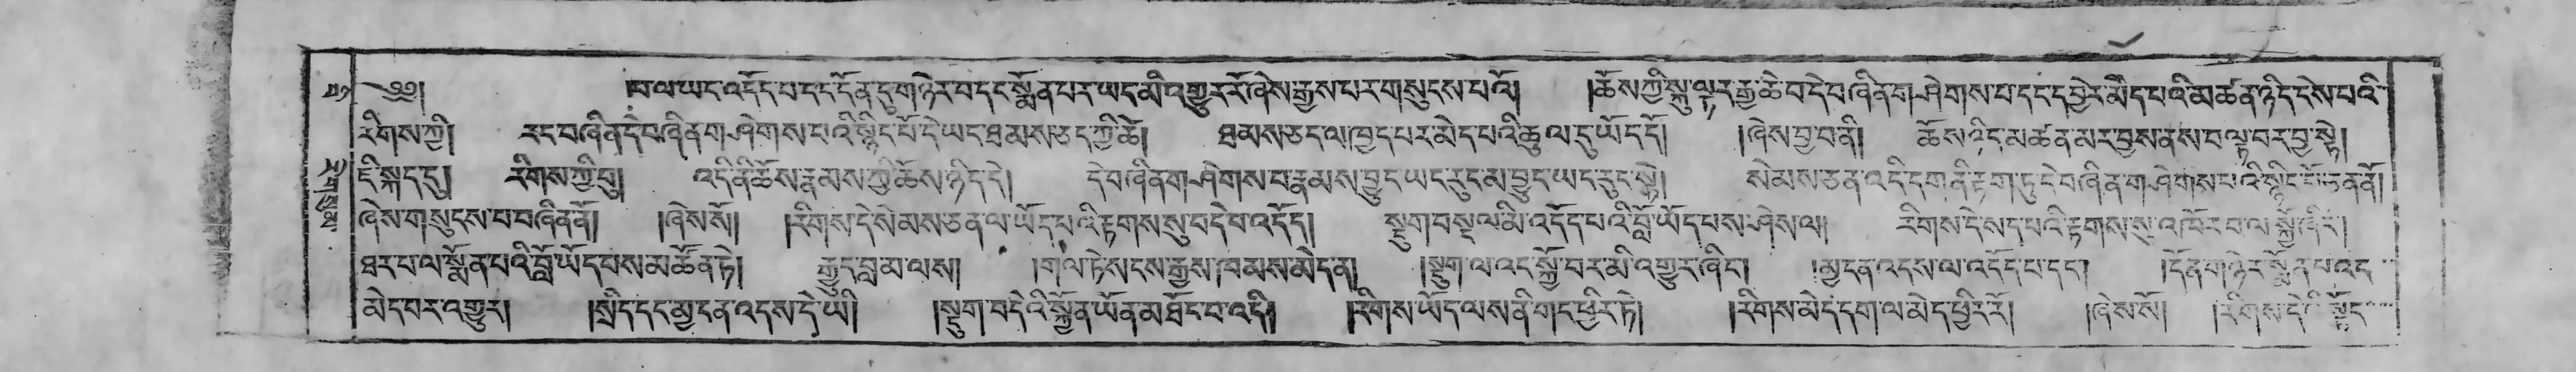 ༄༅། །བ་ལ་ཡང་འདོད་པ་དང་དོན་དུ་གཉེར་བ་དང་སྨོན་པར་ཡང་མི་འགྱུར་རོ་ཞེས་རྒྱས་པར་གསུངས་པའོ། །ཆོས་ཀྱི་སྐུ་ལྟར་རྒྱ་ཆེ་བ་དེ་བཞིན་གཤེགས་པ་དང་དབྱེར་མེད་པའི་མཚན་ཉིད་ངེས་པའི་
རིགས་ཀྱི། རང་བཞིན་དེ་བཞིན་གཤེགས་པའི་སྙིང་པོ་དེ་ཡང་ཐམས་ཅད་ཀྱི་ཚེ། ཐམས་ཅད་ལ་ཁྱད་པར་མེད་པའི་ཚུལ་དུ་ཡོད་དོ། །ཞེས་བྱ་བ་ནི། ཆོས་ཉིད་མཚན་མར་བྱས་ནས་བལྟ་བར་བྱ་སྟེ།
ཇི་སྐད་དུ། རིགས་ཀྱི་བུ། འདི་ནི་ཆོས་རྣམས་ཀྱི་ཆོས་ཉིད་དེ། དེ་བཞིན་གཤེགས་པ་རྣམས་བྱུང་ཡང་རུང་མ་བྱུང་ཡང་རུང་སྟེ། སེམས་ཅན་འདི་དག་ནི་རྟག་ཏུ་དེ་བཞིན་གཤེགས་པའི་སྙིང་པོ་ཅན་ནོ།
ཞེས་གསུངས་པ་བཞིན་ནོ། །ཞེས་སོ། །རིགས་དེ་སེམས་ཅན་ལ་ཡོད་པའི་རྟགས་སུ་བདེ་བ་འདོད། སྡུག་བསྔལ་མི་འདོད་པའི་བློ་ཡོད་པས་ཤེས་ལ། རིགས་དེ་སད་པའི་རྟགས་སུ་འཁོར་བ་ལ་སྐྱོ་ཞིང་།
ཐར་པ་ལ་སྨོན་པའི་བློ་ཡོད་པས་མཚོན་ཏེ། རྒྱུད་བླ་མ་ལས། །གལ་ཏེ་སངས་རྒྱས་ཁམས་མེད་ན། །སྡུག་ལ་འང་སྐྱོ་བར་མི་འགྱུར་ཞིང་། །མྱ་ངན་འདས་ལ་འདོད་པ་དང་། །དོན་གཉེར་སྨོན་པ་འང་
མེད་པར་འགྱུར། །སྲིད་དང་མྱ་ངན་འདས་དེ་ཡི། །སྡུག་བདེའི་སྐྱོན་ཡོན་མཐོང་བ་འདི། །རིགས་ཡོད་ལས་ནི་གང་ཕྱིར་ཏེ། །རིགས་མེད་དག་ལ་མེད་ཕྱིར་རོ། །ཞེས་སོ། །རིགས་དེ་ནི་སྟོང་